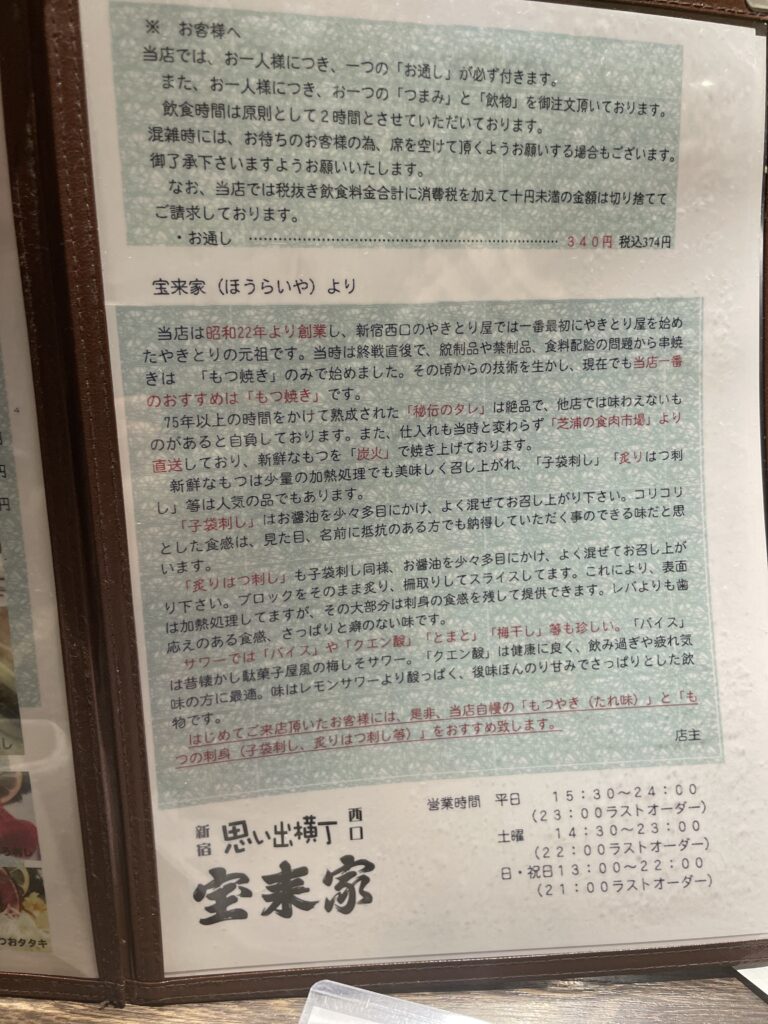 ※　お客様へ
当店では、お一人様につき、一つの「お通し」が必ず付きます。
また、お一人様につき、お一つの「つまみ」と「飲物」を御注文頂いております。
飲食時間は原則として２時間とさせていただいております。
混雑時には、お待ちのお客様の為、席を空けて頂くようお願いする場合もございます。
御了承下さいますようお願いいたします。
なお、当店では税抜き飲食料金合計に消費税を加えて十円未満の金額は切り捨てて
ご請求しております。
・お通し ………………………………………………… 340円 税込374円
宝来家（ほうらいや）より
当店は昭和22年より創業し、新宿西口のやきとり屋では一番最初にやきとり屋を始め
たやきとりの元祖です。当時は終戦直後で、統制品や禁制品、食料配給の問題から串焼
きは　「もつ焼き」のみで始めました。その頃からの技術を生かし、現在でも当店一番
のおすすめは「もつ焼き」です。
75年以上の時間をかけて熟成された「秘伝のタレ」は絶品で、他店では味わえないも
のがあると自負しております。また、仕入れも当時と変わらず「芝浦の食肉市場」より
直送しており、新鮮なもつを「炭火」で焼き上げております。
新鮮なもつは少量の加熱処理でも美味しく召し上がれ、「子袋刺し」「炙りはつ刺
し」等は人気の品でもあります。
「子袋刺し」はお醤油を少々多目にかけ、よく混ぜてお召し上がり下さい。コリコリ
とした食感は、見た目、名前に抵抗のある方でも納得していただく事のできる味だと思
います。
「炙りはつ刺し」も子袋刺し同様、お醤油を少々多目にかけ、よく混ぜてお召し上が
り下さい。ブロックをそのまま炙り、柵取りしてスライスしてます。これにより、表面
は加熱処理してますが、その大部分は刺身の食感を残して提供できます。レバよりも歯
応えのある食感、さっぱりと癖のない味です。
サワーでは「バイス」や「クエン酸」「とまと」「梅干し」等も珍しい。「バイス」
は昔懐かし駄菓子屋風の梅しそサワー。「クエン酸」は健康に良く、飲み過ぎや疲れ気
味の方に最適。味はレモンサワーより酸っぱく、後味ほんのり甘みでさっぱりとした飲
物です。
はじめてご来店頂いたお客様には、是非、当店自慢の「もつやき（たれ味）」と「も
つの刺身（子袋刺し、炙りはつ刺し等）」をおすすめ致します。
店主
新宿 思い出横丁 西口
宝来家
営業時間　平日　１５：３０～２４：００
（２３：００ラストオーダー）
土曜　１４：３０～２３：００
（２２：００ラストオーダー）
日・祝日１３：００～２２：００
（２１：００ラストオーダー）
円
円
つおタタキ